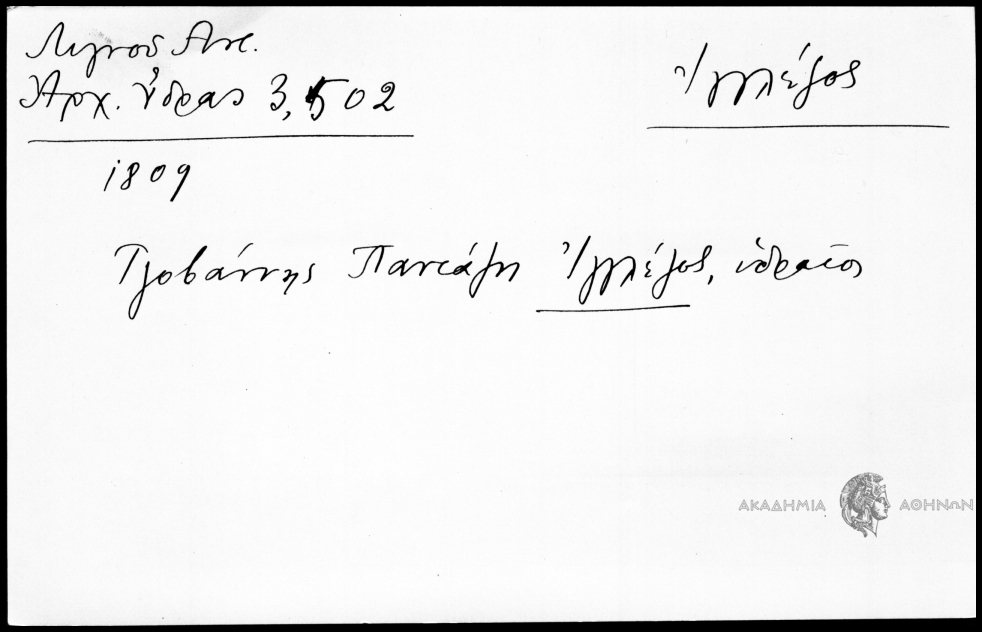 Λιγνοῦ Ἀντ.
Ἀρχ. Ὕδρας 3, 502
Ἰγγλέζος
1809
Τζοβάννης Παντάζη Ἰγγλέζος, ὑδραῖος
ΑΚΑΔΗΜΙΑ ΑΘΗΝΩΝ